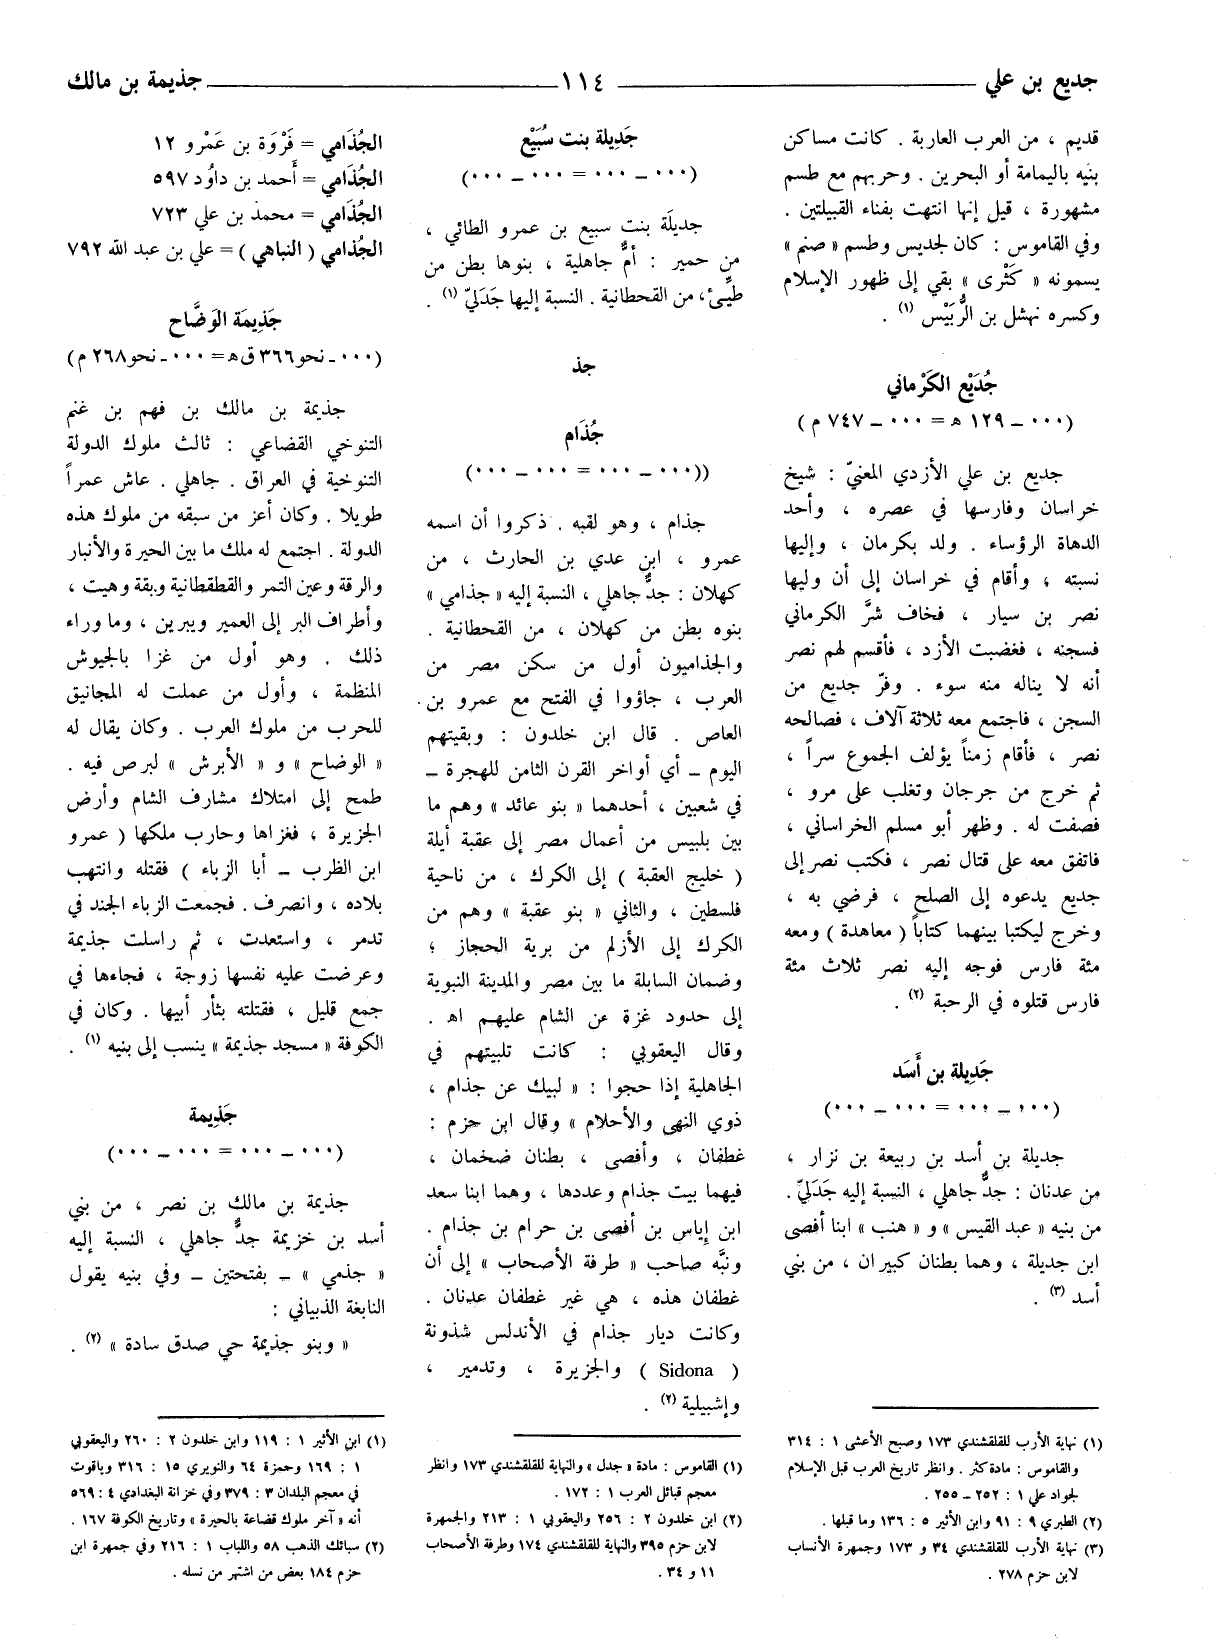 جديع بن علي ١١٤ جذيمة بن مالك
قديم ، من العرب العاربة . كانت مساكن
بنيه باليمامة أو البحرين . وحربهم مع طسم
مشهورة ، قيل إنها انتهت بفناء القبيلتين .
وفي القاموس : كان لجديس وطسم « صنم »
يسمونه « كَثْرى » بقي إلى ظهور الإسلام
وكسره نهشل بن الرُّبَيْس (١) .
جُدَيْع الكَرْماني
(٠٠٠ ـ ١٢٩ ه = ٠٠٠ ـ ٧٤٧ م)
جديع بن علي الأزدي المعنيّ : شيخ
خراسان وفارسها في عصره ، وأحد
الدهاة الرؤساء . ولد بكرمان ، وإليها
نسبته ، وأقام في خراسان إلى أن وليها
نصر بن سيار ، فخاف شرَّ الكرماني
فسجنه ، فغضبت الأزد ، فأقسم لهم نصر
أنه لا يناله منه سوء . وفرّ جديع من
السجن ، فاجتمع معه ثلاثة آلاف ، فصالحه
نصر ، فأقام زمناً يؤلف الجموع سراً ،
ثم خرج من جرجان وتغلب على مرو ،
فصفت له . وظهر أبو مسلم الخراساني ،
فاتفق معه على قتال نصر ، فكتب نصر إلى
جديع يدعوه إلى الصلح ، فرضي به ،
وخرج ليكتبا بينهما كتاباً ( معاهدة ) ومعه
مئة فارس فوجه إليه نصر ثلاث مئة
فارس قتلوه في الرحبة (٢) .
جَدِيلة بن أَسَد
(٠٠٠ ـ ٠٠٠ = ٠٠٠ ـ ٠٠٠)
جديلة بن أسد بن ربيعة بن نزار ،
من عدنان : جدٌّ جاهلي ، النسبة إليه جَدَليّ .
من بنيه « عبد القيس » و « هنب » ابنا أفصى
ابن جديلة ، وهما بطنان كبيران ، من بني
أسد (٣) .
(١) نهاية الأرب للقلقشندي ١٧٣ وصبح الأعشى ١ : ٣١٤
والقاموس : مادة كثر . وانظر تاريخ العرب قبل الإسلام
لجواد علي ١ : ٢٥٢ ـ ٢٥٥ .
(٢) الطبري ٩ : ٩١ وابن الأثير ٥ : ١٣٦ وما قبلها .
(٣) نهاية الأرب للقلقشندي ٣٤ و ١٧٣ وجمهرة الأنساب
لابن حزم ٢٧٨ .
جَدِيلة بنت سُبَيْع
(٠٠٠ ـ ٠٠٠ = ٠٠٠ ـ ٠٠٠)
جديلَة بنت سبيع بن عمرو الطائي ،
من حمير : أمٌّ جاهلية ، بنوها بطن من
طيِّئ ، من القحطانية . النسبة إليها جَدَليّ (١) .
جذ
جُذَام
((٠٠٠ ـ ٠٠٠ = ٠٠٠ ـ ٠٠٠)
جذام ، وهو لقبه . ذكروا أن اسمه
عمرو ، ابن عدي بن الحارث ، من
كهلان : جدٌّ جاهلي ، النسبة إليه « جذامي »
بنوه بطن من كهلان ، من القحطانية .
والجذاميون أول من سكن مصر من
العرب ، جاؤوا في الفتح مع عمرو بن
العاص . قال ابن خلدون : وبقيتهم
اليوم ـ أي أواخر القرن الثامن للهجرة ـ
في شعبين ، أحدهما « بنو عائد » وهم ما
بين بلبيس من أعمال مصر إلى عقبة أيلة
( خليج العقبة ) إلى الكرك ، من ناحية
فلسطين ، والثاني « بنو عقبة » وهم من
الكرك إلى الأزلم من برية الحجاز ؛
وضمان السابلة ما بين مصر والمدينة النبوية
إلى حدود غزة عن الشام عليهم اه .
وقال اليعقوبي : كانت تلبيتهم في
الجاهلية إذا حجوا : « لبيك عن جذام ،
ذوي النهى والأحلام » وقال ابن حزم :
غطفان ، وأفصى ، بطنان ضخمان ،
فيهما بيت جذام وعددها ، وهما ابنا سعد
ابن إياس بن أفصى بن حرام بن جذام .
ونبَّه صاحب « طرفة الأصحاب » إلى أن
غطفان هذه ، هي غير غطفان عدنان .
وكانت ديار جذام في الأندلس شذونة
( Sidona ) والجزيرة ، وتدمير ،
وإشبيلية (٢) .
(١) القاموس : مادة « جدل » والنهاية للقلقشندي ١٧٣ وانظر
معجم قبائل العرب ١ : ١٧٢ .
(٢) ابن خلدون ٢ : ٢٥٦ واليعقوبي ١ : ٢١٣ والجمهرة
لابن حزم ٣٩٥ والنهاية للقلقشندي ١٧٤ وطرفة الأصحاب
١١ و ٣٤ .
الجُذَامي = فَرْوَة بن عَمْرو ١٢
الجُذَامي = أَحمد بن داوُد ٥٩٧
الجُذَامي = محمد بن علي ٧٢٣
الجُذامي ( النباهي ) = علي بن عبد الله ٧٩٢
جَذِيمَة الوَضَّاح
(٠٠٠ ـ نحو ٣٦٦ ق ه = ٠٠٠ ـ نحو ٢٦٨ م)
جذيمة بن مالك بن فهم بن غنم
التنوخي القضاعي : ثالث ملوك الدولة
التنوخية في العراق . جاهلي . عاش عمراً
طويلا . وكان أعز من سبقه من ملوك هذه
الدولة . اجتمع له ملك ما بين الحيرة والأنبار
والرقة وعين التمر والقطقطانية وبقة وهيت ،
وأطراف البر إلى العمير ويبرين ، وما وراء
ذلك . وهو أول من غزا بالجيوش
المنظمة ، وأول من عملت له المجانيق
للحرب من ملوك العرب . وكان يقال له
« الوضاح » و « الأبرش » لبرص فيه .
طمح إلى امتلاك مشارف الشام وأرض
الجزيرة ، فغزاها وحارب ملكها ( عمرو
ابن الظرب ـ أبا الزباء ) فقتله وانتهب
بلاده ، وانصرف . فجمعت الزباء الجند في
تدمر ، واستعدت ، ثم راسلت جذيمة
وعرضت عليه نفسها زوجة ، فجاءها في
جمع قليل ، فقتلته بثأر أبيها . وكان في
الكوفة « مسجد جذيمة » ينسب إلى بنيه (١) .
جَذِيمة
(٠٠٠ ـ ٠٠٠ = ٠٠٠ ـ ٠٠٠)
جذيمة بن مالك بن نصر ، من بني
أسد بن خزيمة جدٌّ جاهلي ، النسبة إليه
« جذمي » ـ بفتحتين ـ وفي بنيه يقول
النابغة الذبياني :
« وبنو جذيمة حي صدق سادة » (٢) .
(١) ابن الأثير ١ : ١١٩ وابن خلدون ٢ : ٢٦٠ واليعقوبي
١ : ١٦٩ وحمزة ٦٤ والنويري ١٥ : ٣١٦ وياقوت
في معجم البلدان ٣ : ٣٧٩ وفي خزانة البغدادي ٤ : ٥٦٩
أنه « آخر ملوك قضاعة بالحيرة » وتاريخ الكوفة ١٦٧ .
(٢) سبائك الذهب ٥٨ واللباب ١ : ٢١٦ وفي جمهرة ابن
حزم ١٨٤ بعض من اشتهر من نسله .